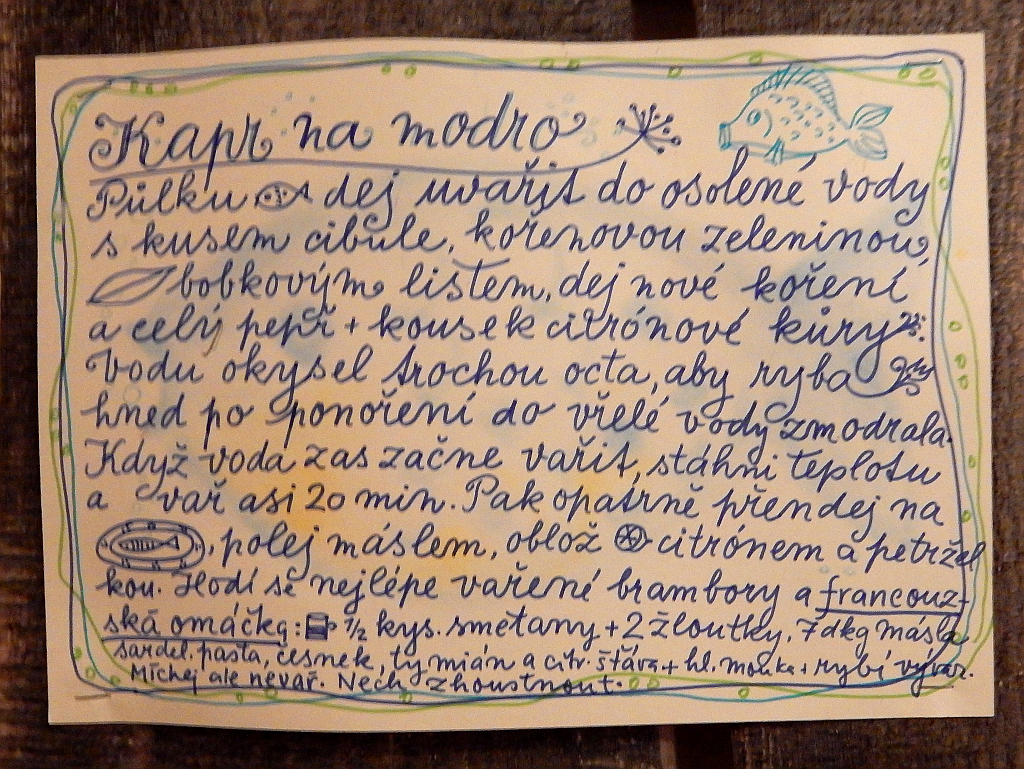 Kapr na modro
Půlku dej uvařit do osolené vody
s kusem cibule, kořenovou zeleninou,
bobkovým listem, dej nové koření
a celý pepř + kousek citrónové kůry.
Vodu okysel trochou octa, aby ryba
hned po ponoření do vřelé vody zmodrala.
Když voda zas začne vařit, stáhni teplotu
a vař asi 20 min. Pak opatrně přendej na
, polej máslem, oblož citrónem a petržel
kou. Hodí se nejlépe vařené brambory a francouz-
ská omáčka: 1/2 kys. smetany + 2 žloutky, 7 dkg másla
sardel. pasta, česnek, tymián a citr. šťáva + hl. mouka + rybí vývar.
Míchej ale nevař. Nech zhoustnout.